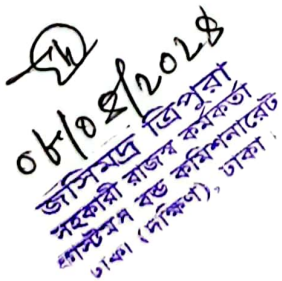 ০৮/০৪/২০২৪
জসিমদ্র ত্রিপুরা
সহকারী রাজস্ব কর্মকর্তা
কাস্টমস বন্ড কমিশনারেট
ঢাকা (দক্ষিণ), ঢাকা।